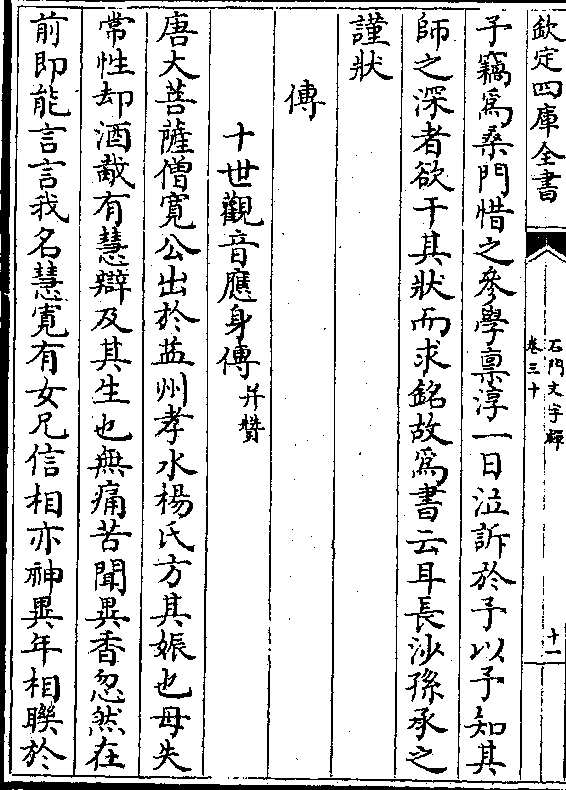 欽定四庫全書
石門文字禪
卷三十
十一
子竊爲桑門惜之參學稟淳一日泣訴於予以予知其
師之深者欲干其狀而求銘故爲書云耳長沙孫承之
謹狀
傳
十世觀音應身傳并贊
唐大菩薩僧寛公出於益州孝水楊氏方其娠也母失
常性却酒胾有慧辯及其生也無痛苦聞異香忽然在
前即能言言我名慧寛有女兄信相亦神異年相聨於